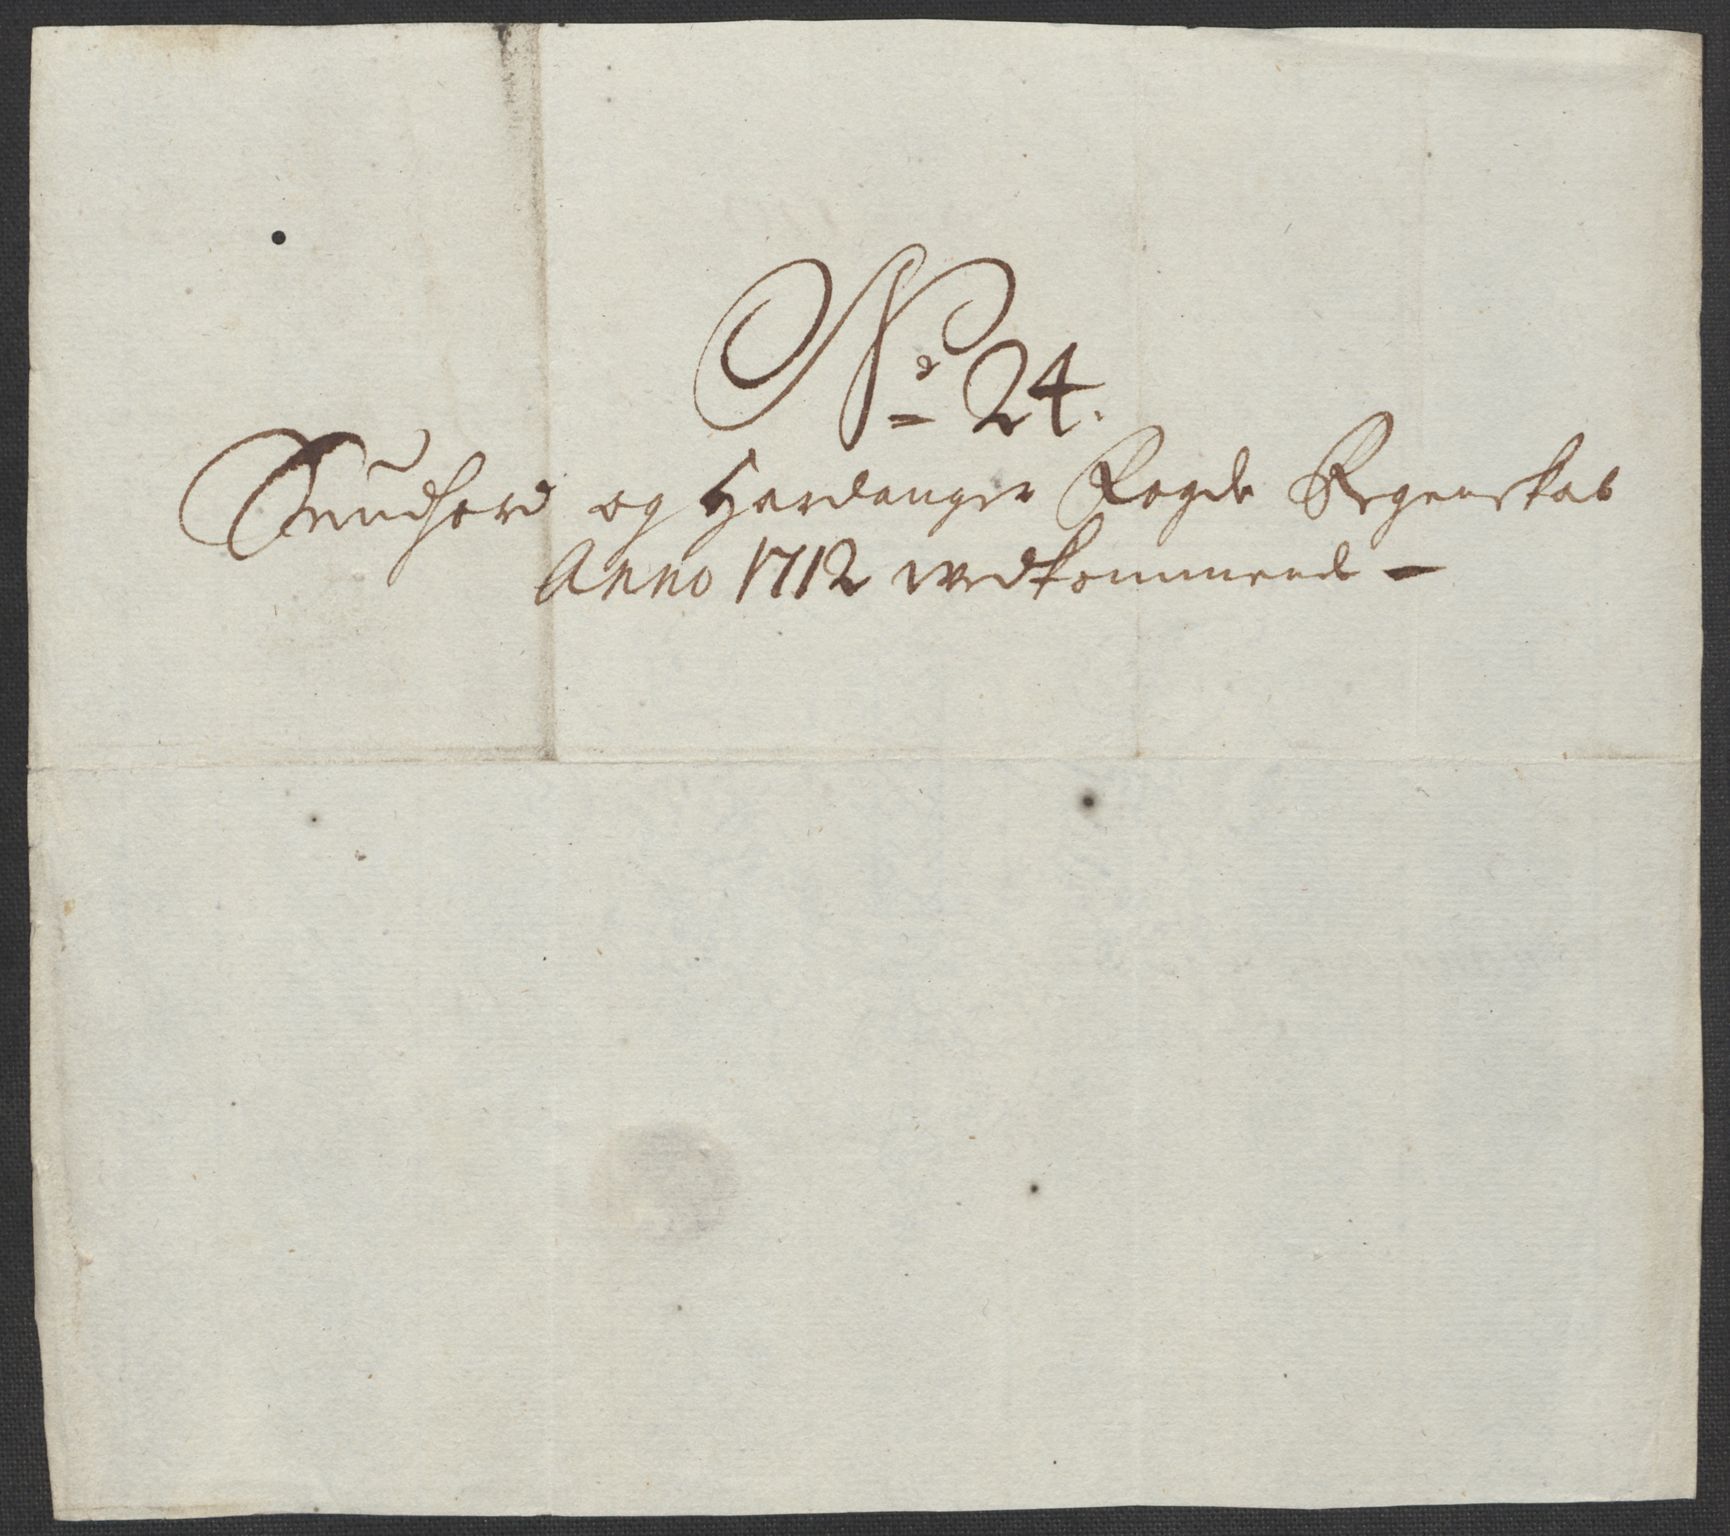 No 24.
Sundhord og Hardanger Fogde Regenskab
Anno 1712 vedkommende –